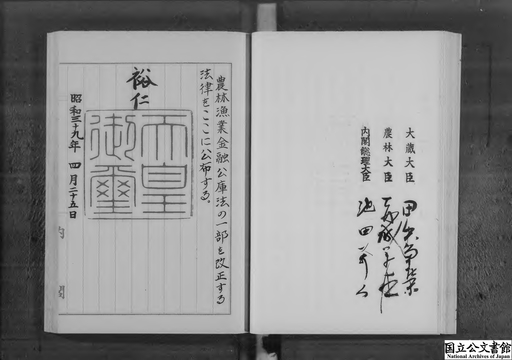 大蔵大臣 田中角榮
農林大臣
内閣総理大臣 池田勇人
農林漁業金融公庫法の一部を改正する
法律をここに公布する。
裕仁
天皇
御璽
昭和三十九年 四月二十五日
内閣
国立公文書館
National Archives of Japan